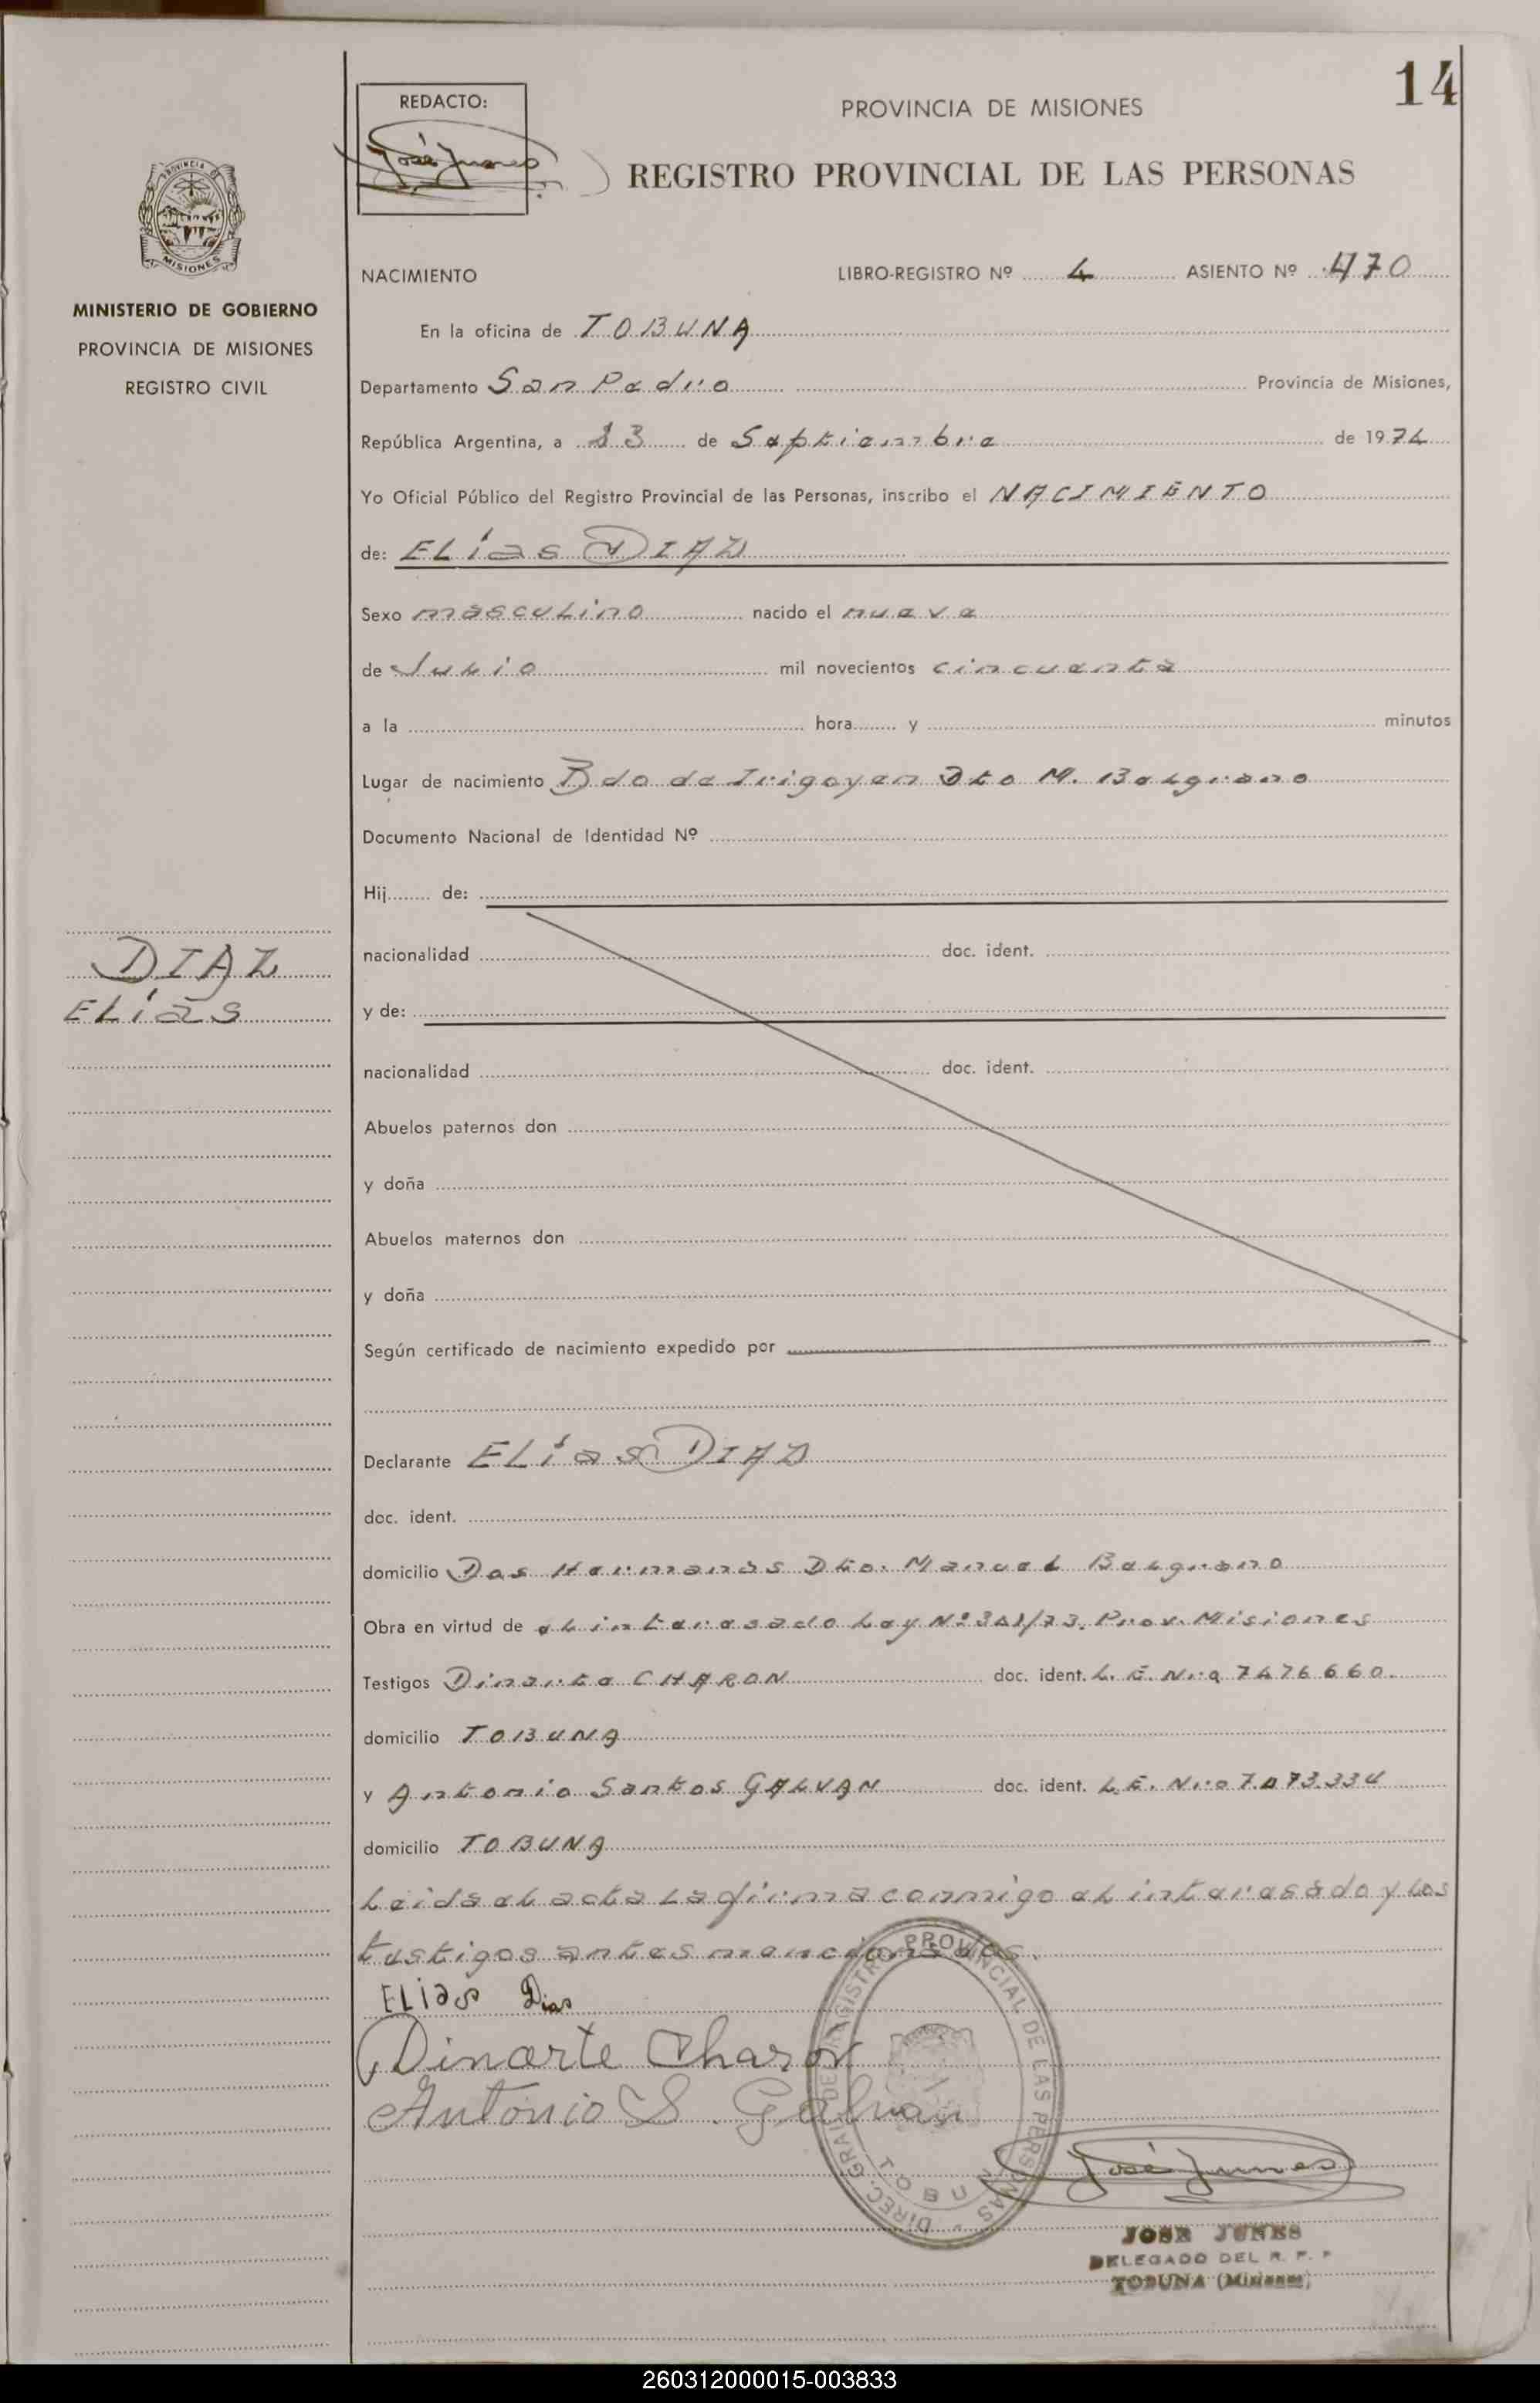 14
REDACTO:
José Junes
PROVINCIA DE MISIONES
REGISTRO PROVINCIAL DE LAS PERSONAS
PROVINCIA DE
MISIONES
MINISTERIO DE GOBIERNO
PROVINCIA DE MISIONES
REGISTRO CIVIL
NACIMIENTO LIBRO-REGISTRO Nº 4 ASIENTO Nº 470
En la oficina de TOBUNA
Departamento San Pedro Provincia de Misiones,
República Argentina, a 13 de Septiembre de 1974
Yo Oficial Público del Registro Provincial de las Personas, inscribo el NACIMIENTO
de: ELías DIAZ
Sexo masculino nacido el nueve
de Julio mil novecientos cincuenta
a la hora y minutos
Lugar de nacimiento Bdo de Irigoyen Dto M. Belgrano
Documento Nacional de Identidad Nº
Hij de:
DIAZ
ELías
nacionalidad doc. ident.
y de:
nacionalidad doc. ident.
Abuelos paternos don
y doña
Abuelos maternos don
y doña
Según certificado de nacimiento expedido por
Declarante ELías DIAZ
doc. ident.
domicilio Dos Hermanas Dto. Manuel Belgrano
Obra en virtud de el interesado Ley Nº 341/73. Prov. Misiones
Testigos Dinarte CHARON doc. ident. L. E. Nro 7476660.
domicilio TOBUNA
y Antonio Santos GALVAN doc. ident. L.E. Nro
domicilio TOBUNA
Leida el acta La firma conmigo el interesado y los
testigos antes mencionados.
ELias Dias
Dinarte Charon
Antonio S. Galvan
DIREC. GRAL DEL REGISTRO PROVINCIAL DE LAS PERSONAS
TOBUNA
José Junes
JOSE JUNES
DELEGADO DEL R. P. P
TOBUNA (Misiones)
260312000015-003833